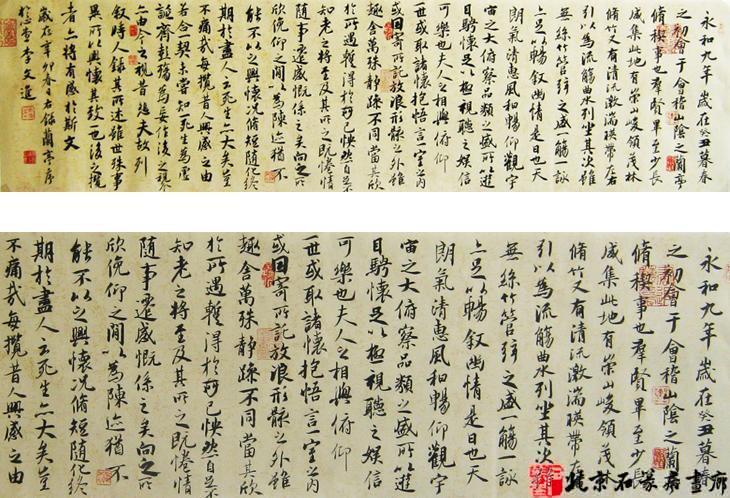 永和九年歲在癸丑暮春
之初會于會稽山陰之蘭亭
脩禊事也羣賢畢至少長
咸集此地有崇山峻領茂林
脩竹又有清流激湍暎帶左右
引以為流觴曲水列坐其次雖
無絲竹管弦之盛一觴一詠
亦足以暢敘幽情是日也天
朗氣清惠風和暢仰觀宇
宙之大俯察品類之盛所以遊
目騁懷足以極視聽之娛信
可樂也夫人之相與俯仰
一世或取諸懷抱悟言一室之內
或因寄所託放浪形骸之外雖
趣舍萬殊靜躁不同當其欣
於所遇蹔得於己怏然自足不
知老之將至及其所之既惓情
隨事遷感慨係之矣向之所
欣俛仰之間以為陳迹猶不
能不以之興懷況脩短隨化終
期於盡古人云死生亦大矣豈
不痛哉每攬昔人興感之由
若合一契未嘗知一死生為虛
誕齊彭殤為妄作後之視
今亦由今之視昔悲夫故列
敘時人錄其所述雖世殊事
異所以興懷其致一也後之攬
者亦將有感於斯文
歲在辛卯春日右錄蘭亭序
李文道
永和九年歲在癸丑暮春
之初會于會稽山陰之蘭
脩禊事也羣賢畢至少長
咸集此地有崇山峻領茂林
脩竹又有清流激湍暎帶
引以為流觴曲水列坐其次
無絲竹管弦之盛一觴一詠
亦足以暢敘幽情是日也天
朗氣清惠風和暢仰觀宇
宙之大俯察品類之盛所以遊
目騁懷足以極視聽之娛信
可樂也夫人之相與俯仰
一世或取諸懷抱悟言一室之內
或因寄所託放浪形骸之外雖
趣舍萬殊靜躁不同當其欣
於所遇蹔得於己怏然自足不
知老之將至及其所之既惓情
隨事遷感慨係之矣向之所
欣俛仰之間以為陳迹猶不
能不以之興懷況脩短隨化終
期於盡古人云死生亦大矣豈
不痛哉每攬昔人興感之由